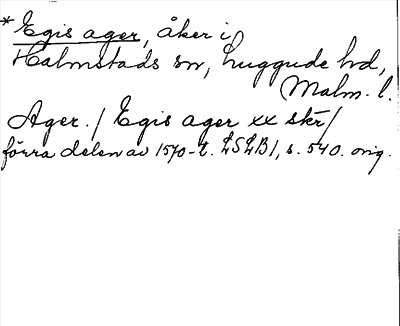 *Egis ager, åker i
Halmstads sn, Luggude hd,
Malm. l.
Ager. / Egis ager xx skr/
förra delen av 1570-t. LSLB1, s. 540. orig.